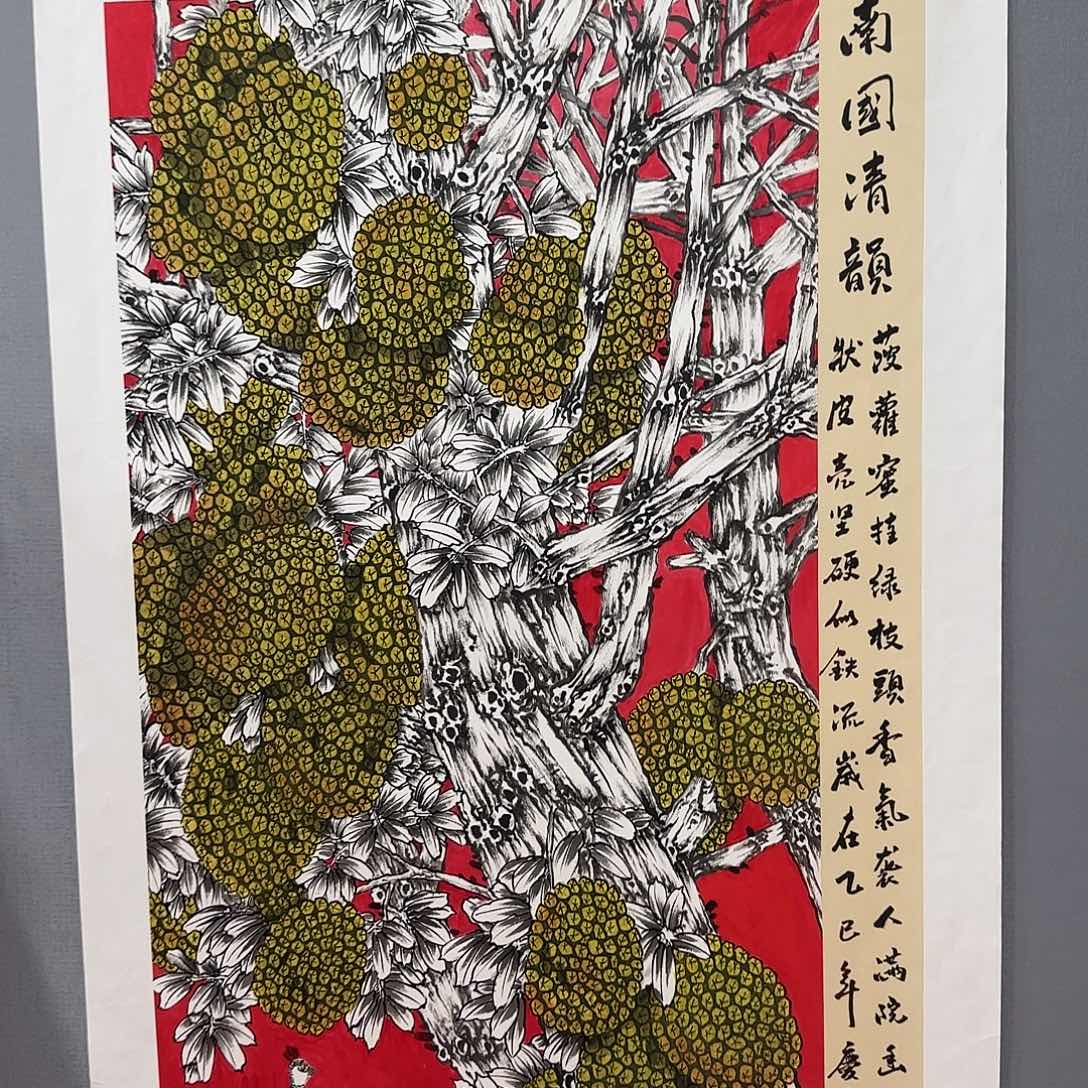 南國清韻
菠蘿蜜挂绿枝頭香氣袭人满院
状皮壳坚硬似鉄流歲在乙巳年慶